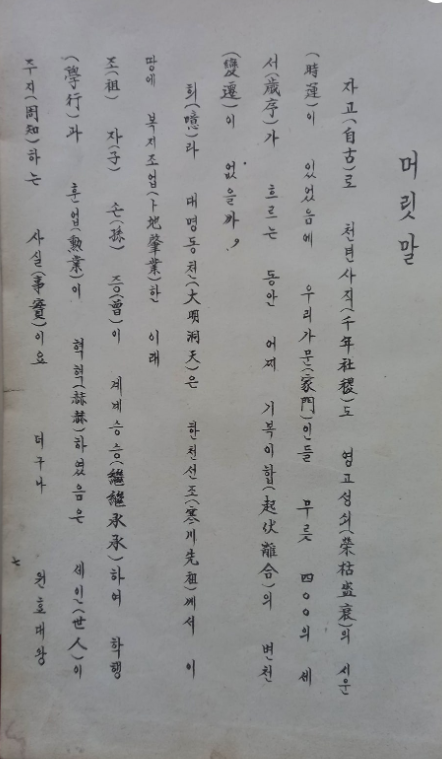 머릿말
자고(自古)로 천년사직(千年社稷)도 영고성쇠(榮枯盛衰)의 서운
(時運)이 있었음에 우리가문(家門)인들 무릇 四〇〇의 세
서(歲序)가 흐르는 동안 어찌 기복이합(起伏離合)의 변천
(變遷)이 없을까,
희(噫)라 대명동천(大明洞天)은 한천선조(寒川先祖)께서 이
땅에 복지조업(卜地肇業)한 이래
조(祖) 자(子) 손(孫) 증(曾)이 계계승승(繼繼承承)하여 학행
(學行)과 훈업(勲業)이 혁혁(赫赫)하였음은 세인(世人)이
주지(周知)하는 사실(事實)이요 더구나 원호대왕